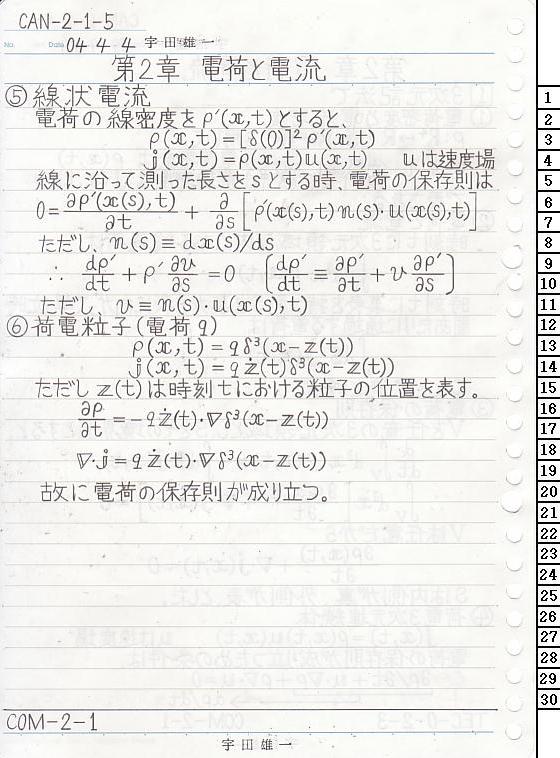 CAN-2-1-5
No. Date 04 4 4 宇田雄一
第2章 電荷と電流
⑤線状電流
電荷の線密度をρ'(x,t)とすると、
ρ(x,t)=[δ(0)]²ρ'(x,t)
j(x,t)=ρ(x,t)u(x,t) uは速度場
線に沿って測った長さをsとする時、電荷の保存則は
0=∂ρ'(x(s),t)/∂t + ∂/∂s[ρ'(x(s),t)n(s)·u(x(s),t)]
ただし、n(s)≡dx(s)/ds
∴ dρ'/dt+ρ'∂v/∂s=0 [dρ'/dt≡∂ρ'/∂t+v∂ρ'/∂s]
ただし、v≡n(s)·u(x(s),t)
⑥荷電粒子(電荷q)
ρ(x,t)=qδ³(x-z(t))
j(x,t)=qż(t)δ³(x-z(t))
ただしz(t)は時刻tにおける粒子の位置を表す。
∂ρ/∂t=-qż(t)·∇δ³(x-z(t))
∇·j=qż(t)·∇δ³(x-z(t))
故に電荷の保存則が成り立つ。
COM-2-1
宇田雄一
1
2
3
4
5
6
7
8
9
10
11
12
13
14
15
16
17
18
19
20
21
22
23
24
25
26
27
28
29
30